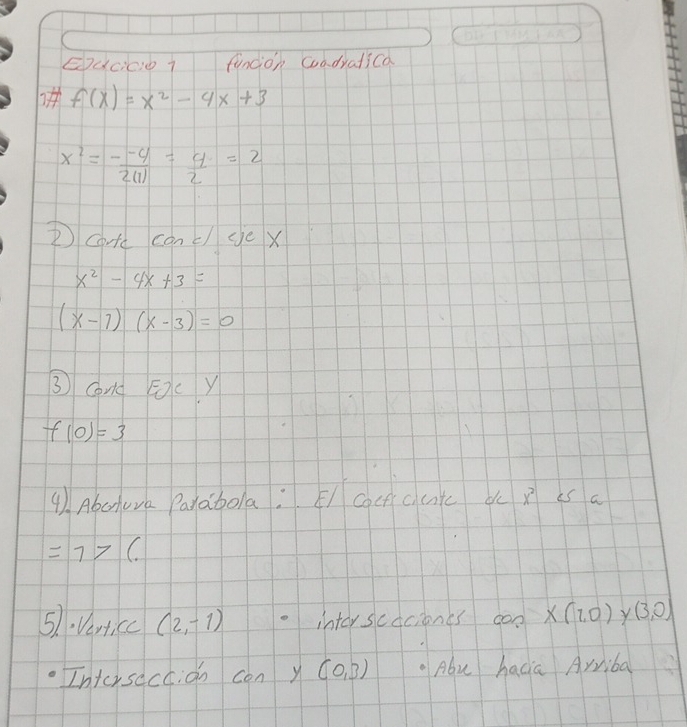 Ejercicio 1 función Cuadratica
1# f(x) = x² - 4x + 3
x² = - -4/2(1) = 4/2 = 2
2) Corte con el eje X
x² - 4x + 3 =
(x-1) (x-3) = 0
3) Corte Eje y
f(0) = 3
4). Abertura Parábola : El coeficiente de x² es a
= 1 > (.
5). • Vertice (2,-1) • intersecciones con X(1,0) y (3,0)
• Intersección con y (0,3) • Abre hacia Arriba